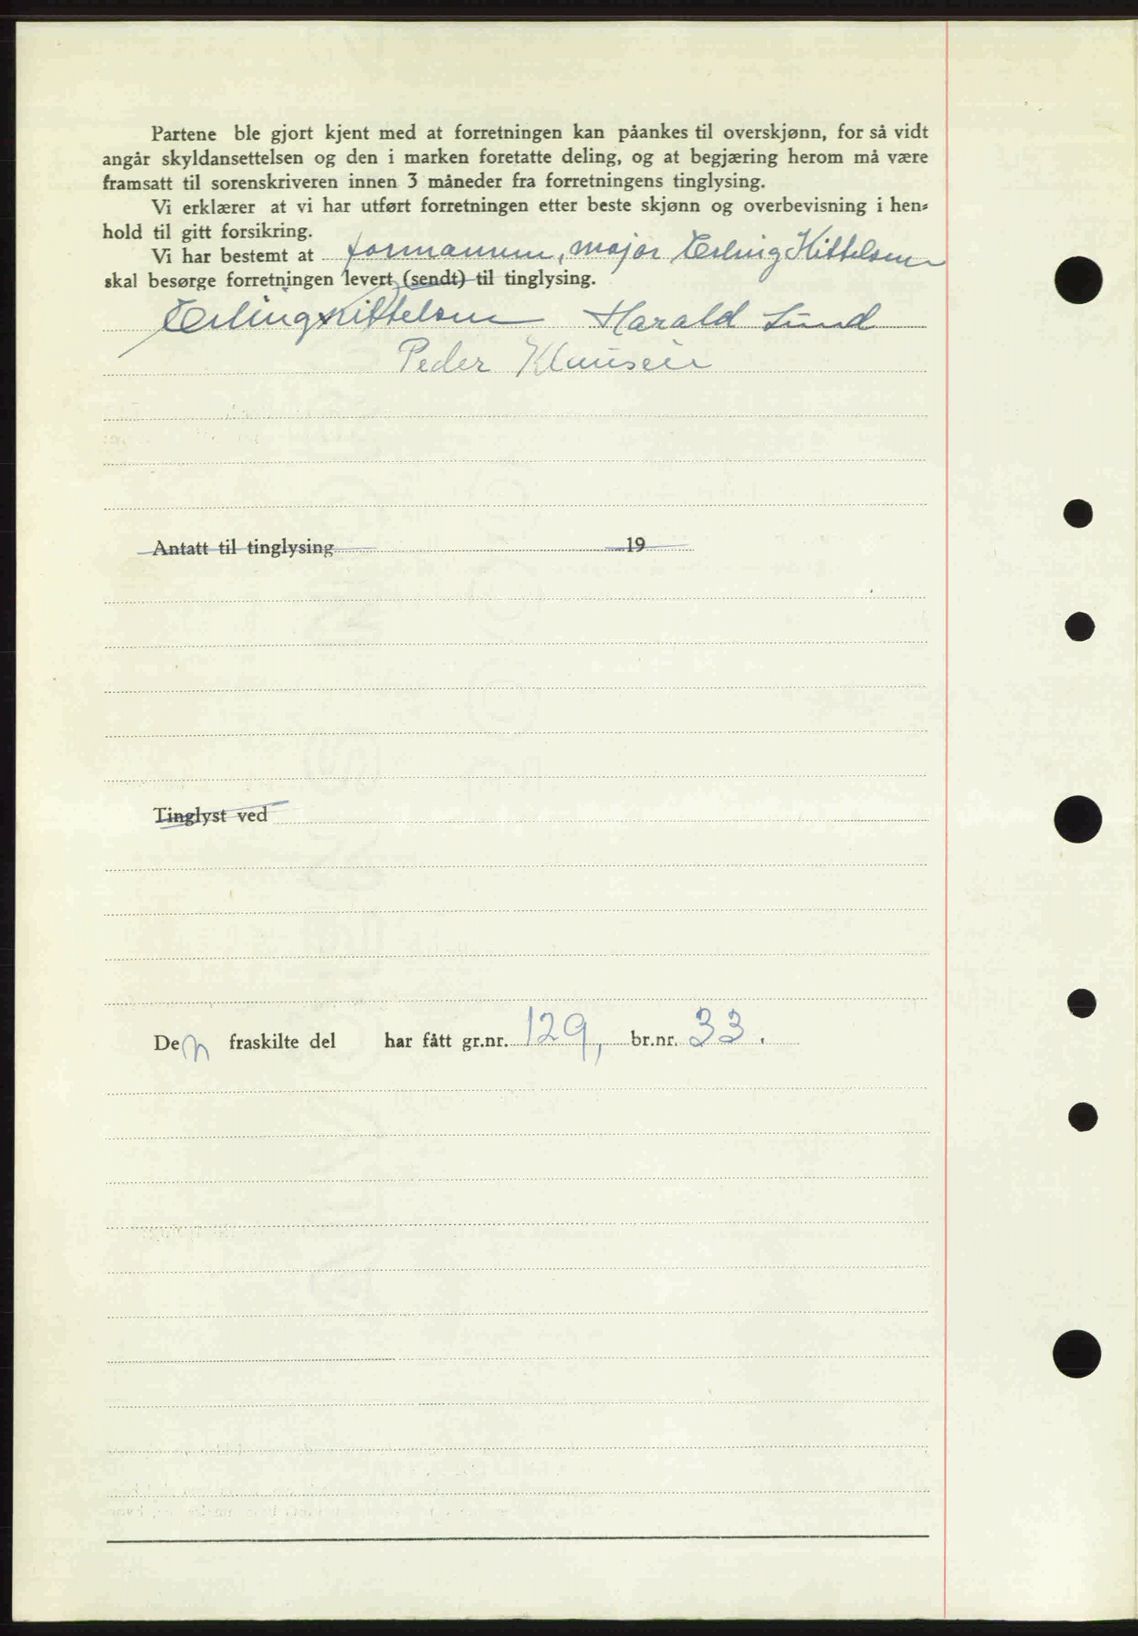 Partene ble gjort kjent med at forretningen kan påankes til overskjønn, for så vidt
angår skyldansettelsen og den i marken foretatte deling, og at begjæring herom må være
framsatt til sorenskriveren innen 3 måneder fra forretningens tinglysing.
Vi erklærer at vi har utført forretningen etter beste skjønn og overbevisning i hen-
hold til gitt forsikring.
Vi har bestemt at formannen, major Erling Kittelsen
skal besørge forretningen levert (sendt) til tinglysing.
Erling Kittelsen Harald Lund
Peder Klausen
Antatt til tinglysing 19
Tinglyst ved
Den fraskilte del har fått gr.nr. 129, br.nr. 33.